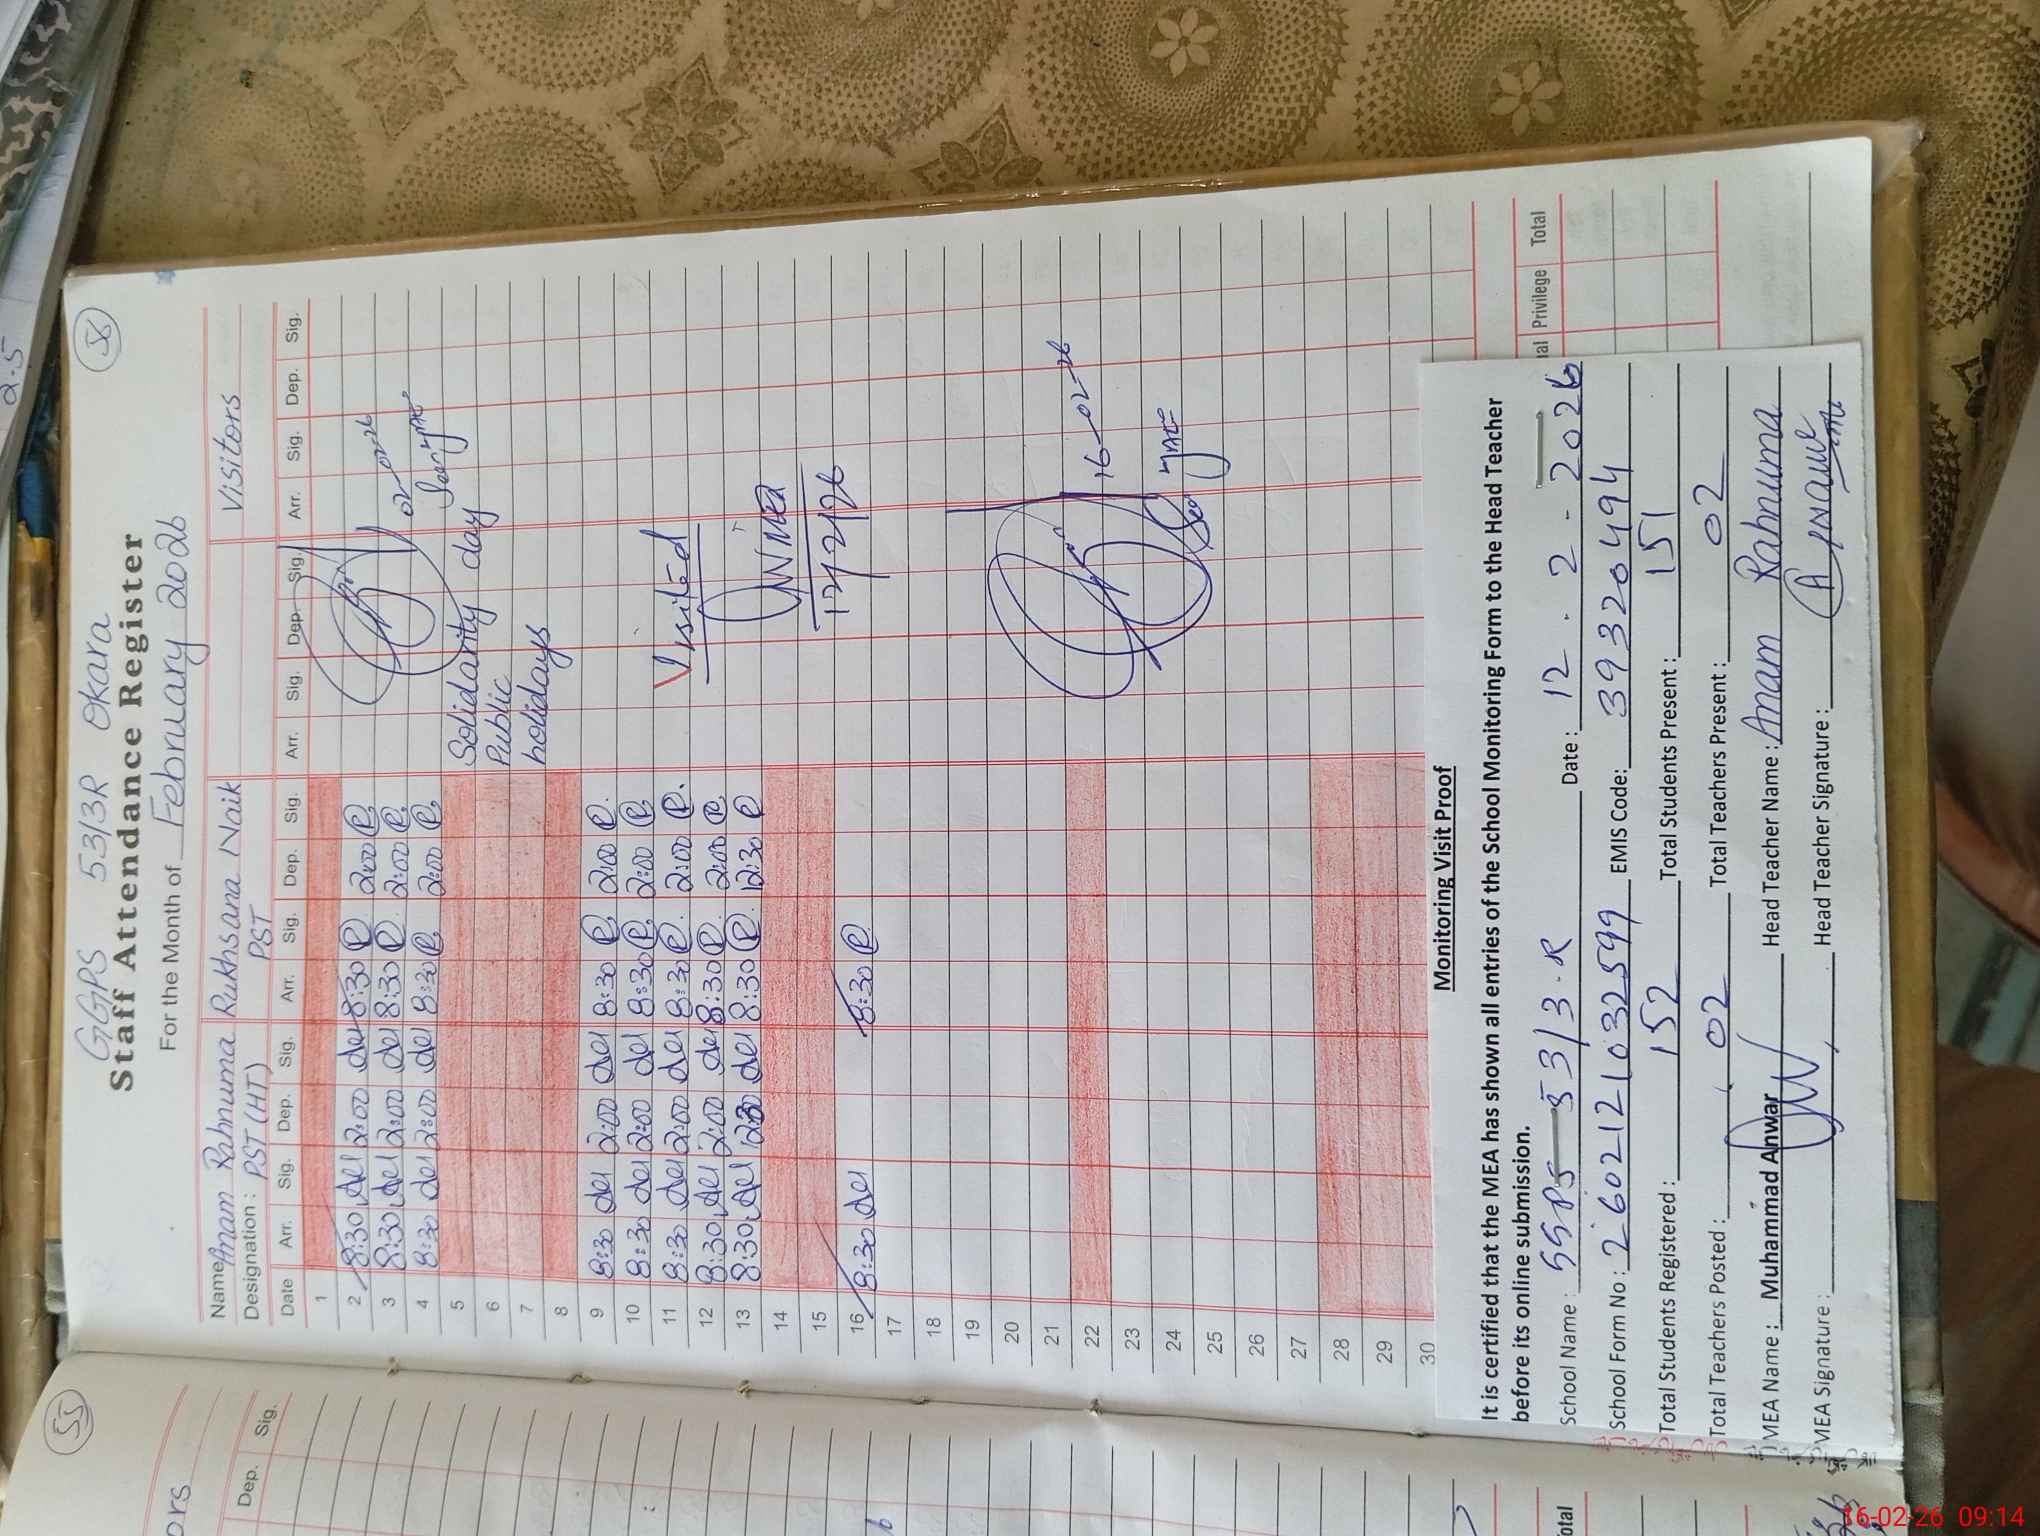 56
GGPS 53/3R Okara
Staff Attendance Register
For the Month of February 2026
Name Anam Rahnuma Rukhsana Naik Visitors
Designation: PST (HT) PST
Date Arr. Sig. Dep. Sig. Arr. Sig. Dep. Sig. Arr. Sig. Dep. Sig. Arr. Sig. Dep. Sig.
1
2 8:30 2:00 8:30 2:00
3 8:30 2:00 8:30 2:00 02-02-26
4 8:30 2:00 8:30 2:00
5 Solidarity day
6 Public
7 holidays
8
9 8:30 2:00 8:30 2:00
10 8:30 2:00 8:30 2:00
11 8:30 2:00 8:30 2:00 Visited
12 8:30 2:00 8:30 2:00
13 8:30 12:30 8:30 12:30
14
15 12/2/26
16 8:30 8:30
17
18
19
20
21
22 16-02-26
23
24
25
26
27
28
29
30
Monitoring Visit Proof
It is certified that the MEA has shown all entries of the School Monitoring Form to the Head Teacher
before its online submission.
School Name: 53/3.R Date: 12.2-2026
School Form No: 2602121032599 EMIS Code: 39320494
Total Students Registered: 152 Total Students Present: 151
Total Teachers Posted: 02 Total Teachers Present: 02
MEA Name: Muhammad Anwar Head Teacher Name: Anam Rahnuma
MEA Signature: Head Teacher Signature:
Privilege Total
55
Dep. Sig.
16-02-26 09:14